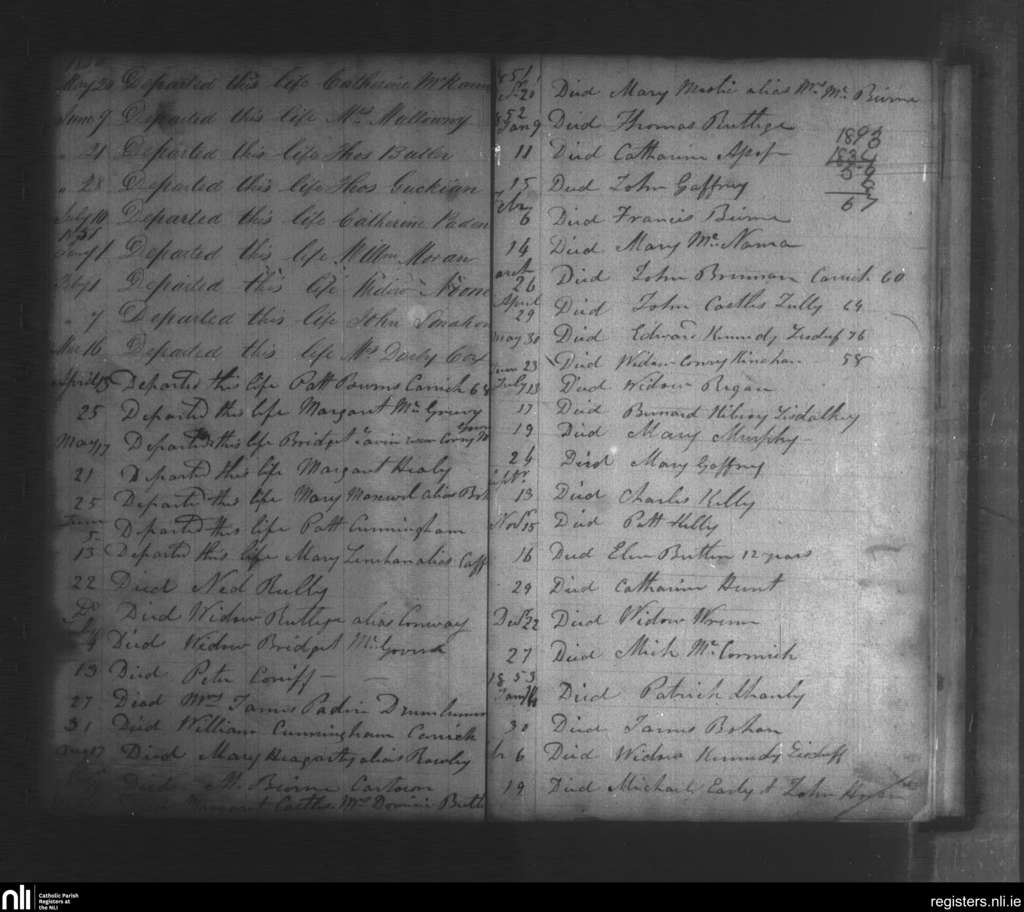 May 29 Departed this life Catherine McKenn
June 9 Departed this life Mrs Mallowny
" 21 Departed this life Thos Butler
" 28 Departed this life Thos Guckian
July 19 Departed this life Catherine Paden
1851
Jany 1 Departed this life Willm Moran
Feby 1 Departed this life Widow Noone
" 7 Departed this life John
Mar 16 Departed this life Mrs Darby Cox
April 15 Departed this life Patt Burns Carrick 68
25 Departed this life Margaret McGreevy
May 17 Departed this life Bridget
21 Departed this life Margaret Healy
25 Departed this life Mary Maxwel alias Boh
June
5 Departed this life Patt Cunningham
13 Departed this life Mary Linehan alias Caff
22 Died Ned Rully
Do Died Widow Ruttige alias Conway
July
4 Died Widow Bridget McGovern
13 Died Peter Coniff
27 Died Mrs James Padin
31 Died William Cunningham Carrick
17 Died Mary Heagarty alias Rowley
Died M. Beirne Cartown
Margaret Mrs Dominic Butl
1851
20 Died Mary alias Mrs Mc Beirne
1852
Jan 9 Died Thomas Ruttige
11 Died Catharine
15 Died John Gaffney
Feby
6 Died Francis Beirne
14 Died Mary McNama
March
26 Died John Brennan Carrick 60
April
29 Died John Tully 64
May 30 Died Edward Kennedy Lisduff 76
June 23 Died Widow Conry Kinehan 58
July 13 Died Widow Regan
17 Died Bernard Kilroy Lisdalkey
19 Died Mary Murphy
24 Died Mary Gaffney
Septr
13 Died Charles Kelly
Novr 15 Died Patt Kelly
16 Died Elen Britten 12 years
29 Died Catharine Hunt
Decr 22 Died Widow Wrenn
27 Died Mich McCormick
1853
Jany 14 Died Patrick Shanly
30 Died James Bohan
6 Died Widow Kennedy Lisduff
19 Died Michael Early & John
1893
1834
59
8
67
nli
Catholic Parish
Registers at
the NLI
registers.nli.ie